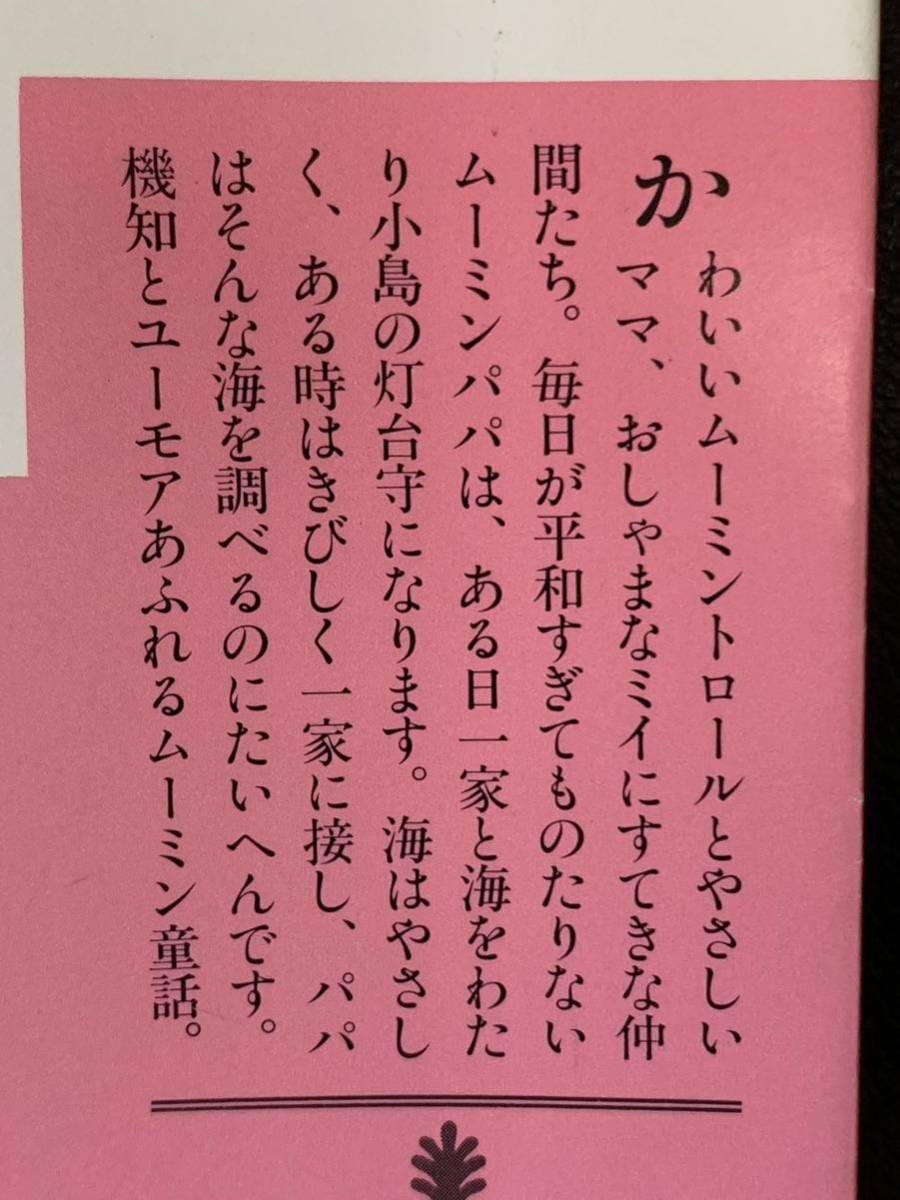 かわいいムーミントロールとやさしい
ママ、おしゃまなミイにすてきな仲
間たち。毎日が平和すぎてものたりない
ムーミンパパは、ある日一家と海をわた
り小島の灯台守になります。海はやさし
く、ある時はきびしく一家に接し、パパ
はそんな海を調べるのにたいへんです。
機知とユーモアあふれるムーミン童話。